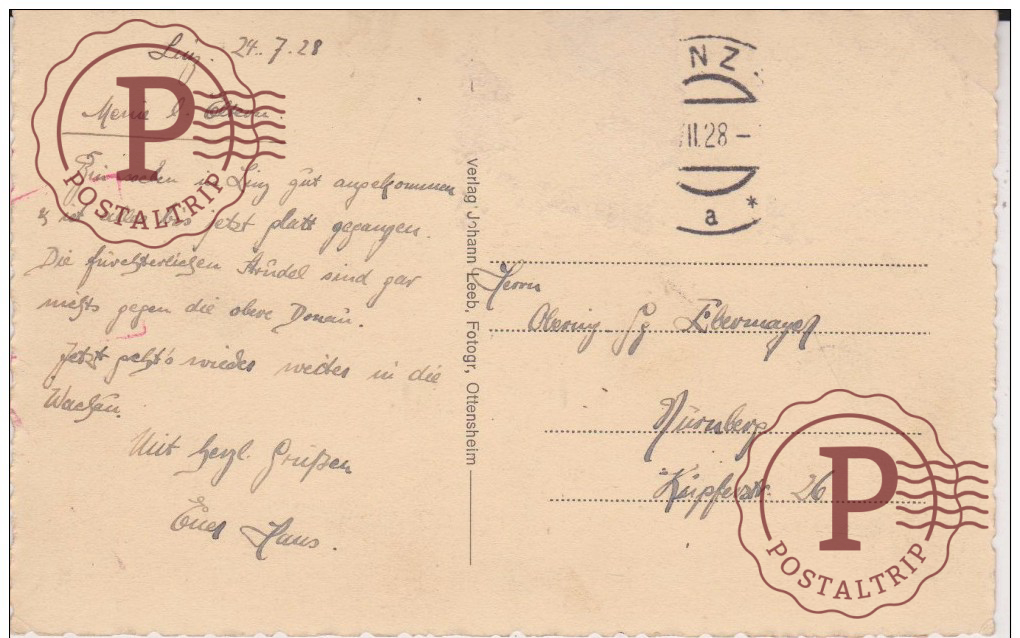 Linz. 24.7.28
Meine l. Eltern.
Bin soeben in Linz gut angekommen
es ist alles bis jetzt glatt gegangen.
Die fürchterlichen Strudel sind gar
nichts gegen die obere Donau.
Jetzt geht's wieder weiter in die
Wachau.
Mit herzl. Grüßen
Euer Hans.
Verlag Johann Leeb, Fotogr, Ottensheim
NZ
VII.28 -
a *
Herrn
Obering. Ebermayer
Nürnberg
Küpferstr. 26
P
POSTALTRIP
P
POSTALTRIP